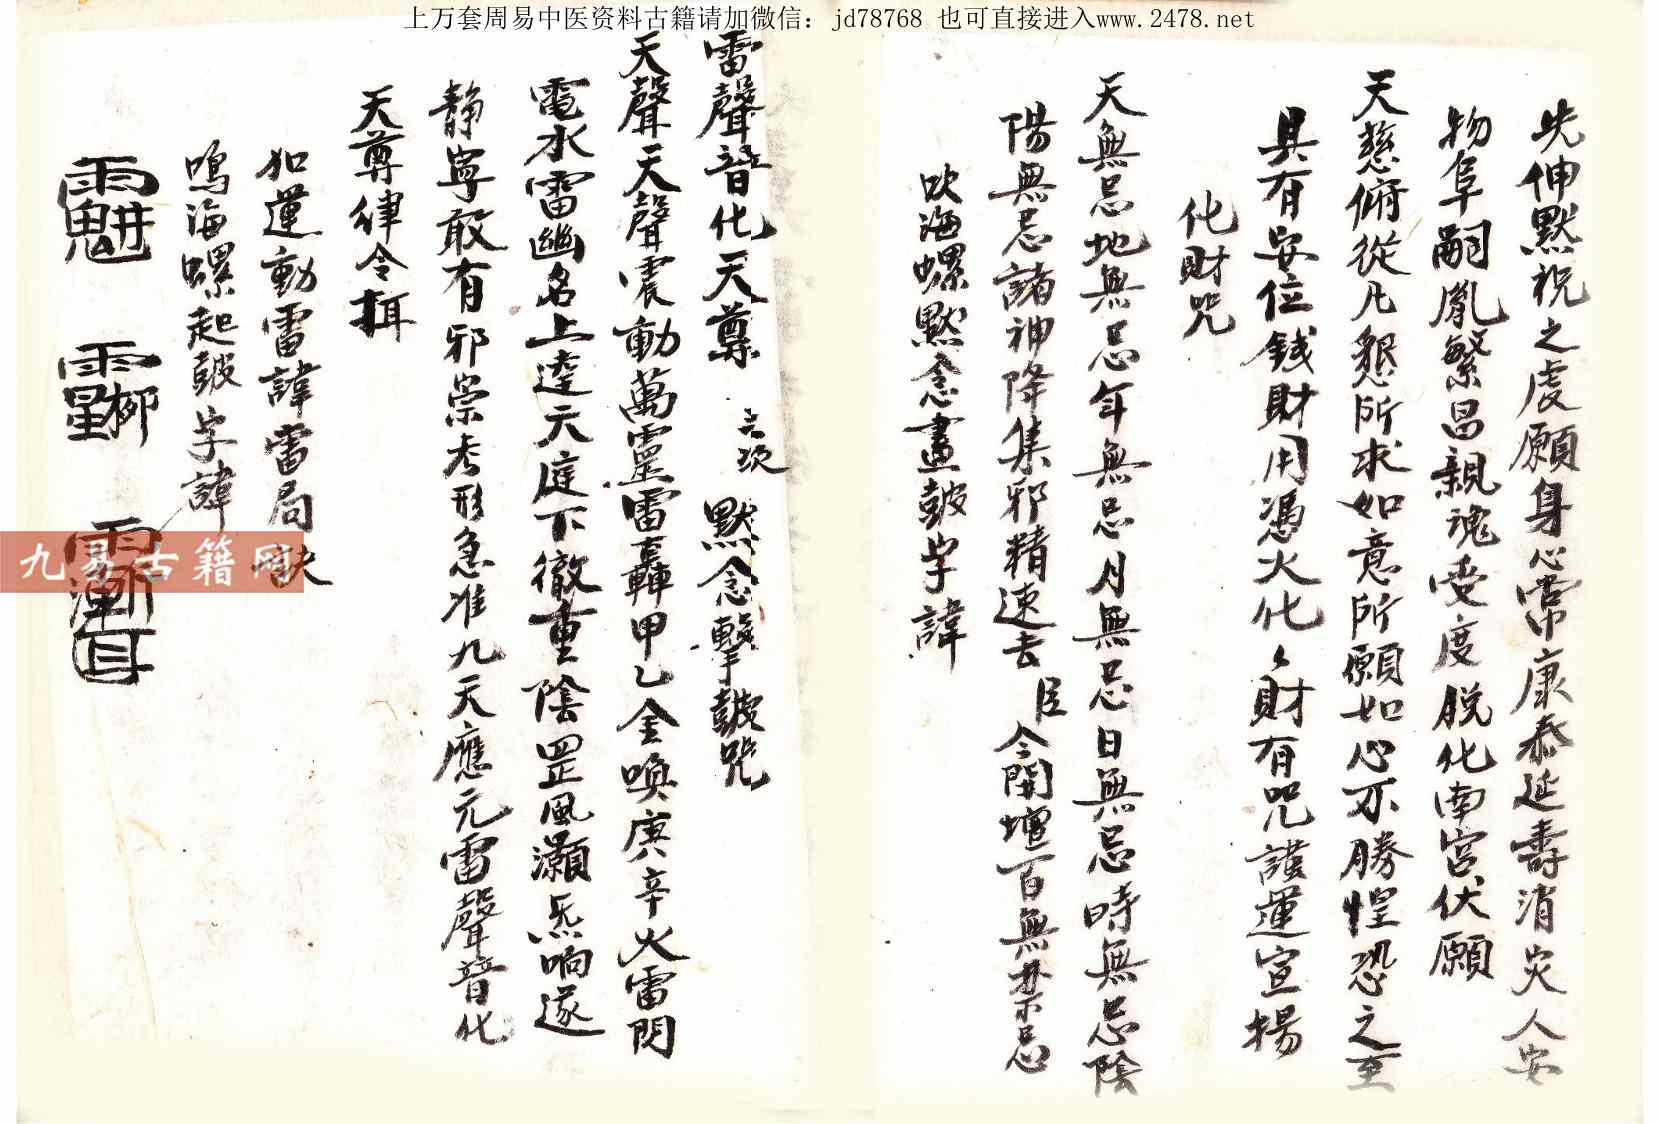 上万套周易中医资料古籍请加微信：jd78768 也可直接进入www.2478.net
先伸默祝之虔願身心常康泰延壽消灾人安
物阜嗣胤繁昌親魂受度脱化南宮伏願
天慈俯從凡懇所求如意所願如心不勝惶恐之至
具有安位錢財用憑火化
財有咒護運宣揚
化財咒
天無忌地無忌年無忌月無忌日無忌時無忌陰
陽無忌諸神降集邪精速去 臣 今開壇百無禁忌
吹海螺默念畫皷字諱
雷聲音化天尊 七次 默念擊皷咒
天聲天聲震動萬靈雷轟甲乙金喚庚辛火雷閃
電水雷幽名上達天庭下徹重陰罡風灝炁响遂
静寧敢有邪祟考形急准九天應元雷聲音化
天尊律令揖
如運動雷諱雷局訣
鳴海螺起皷字諱
九易古籍网